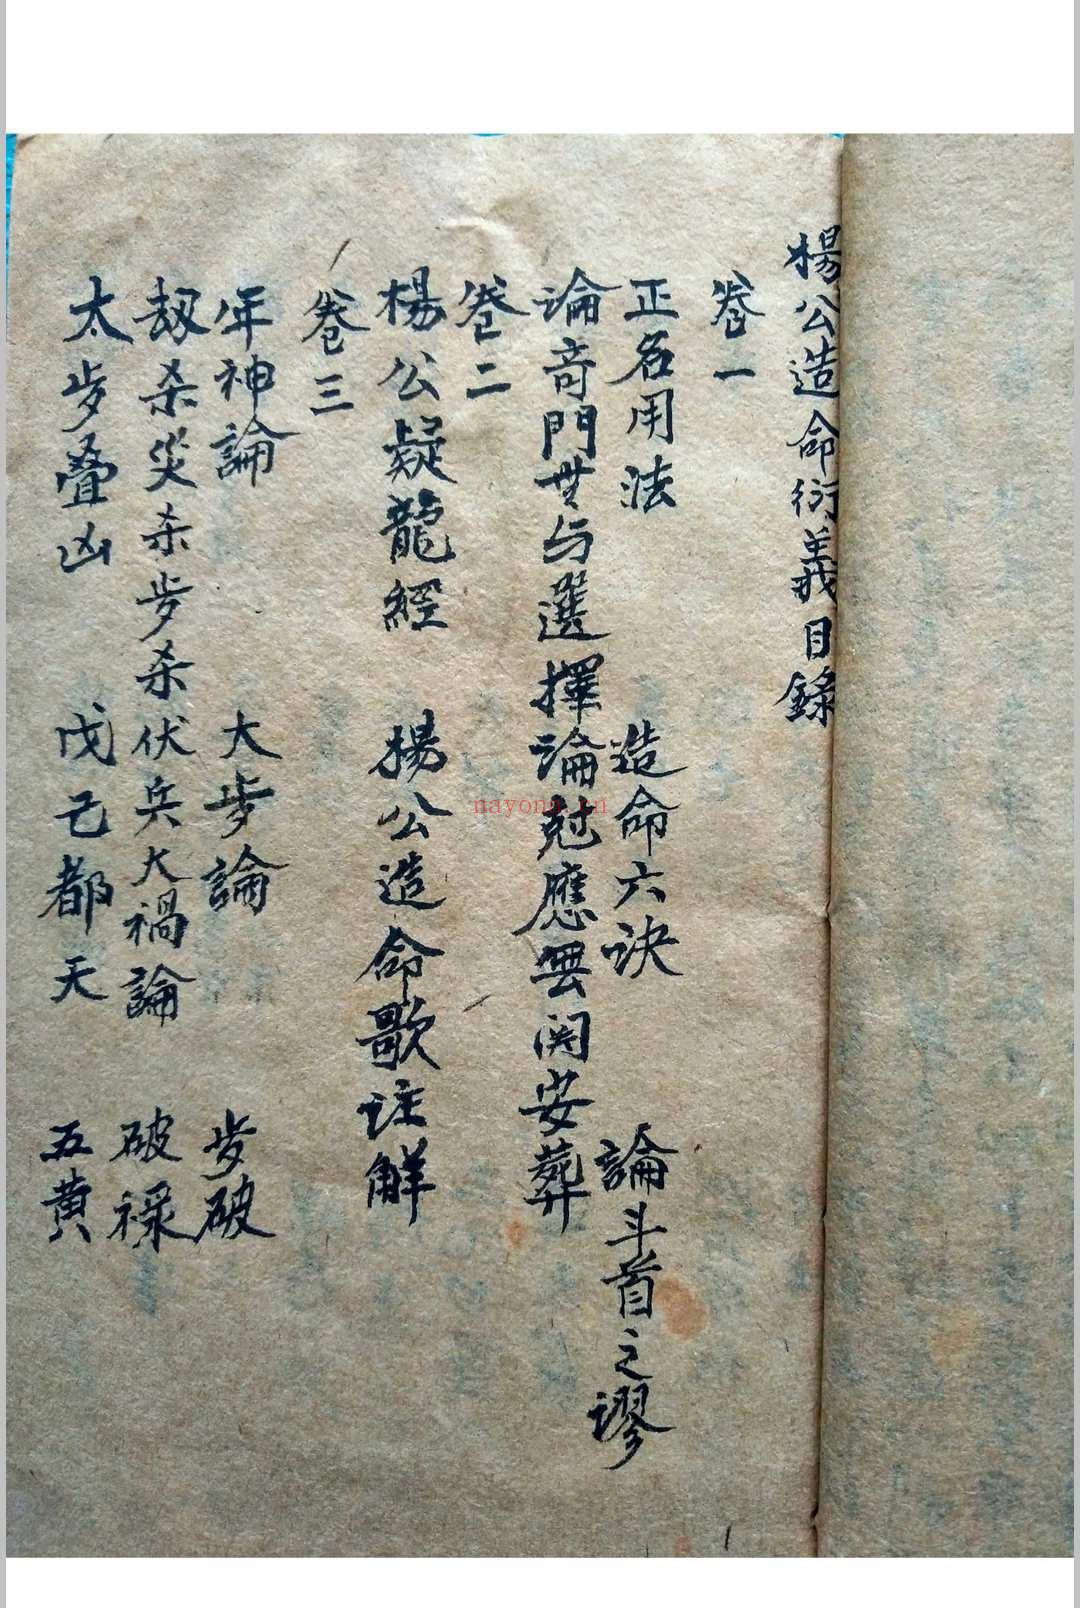 楊公造命衍義目錄
卷一
正名用法 造命六訣 論斗首之謬
論奇門無与選擇論尅應無関安葬
卷二
楊公疑龍經 楊公造命歌註解
卷三
年神論 大歩論 歩破
刼杀災杀歩杀伏兵大禍論 破祿
太歩叠凶 戊己都天 五黄
nayong.cn